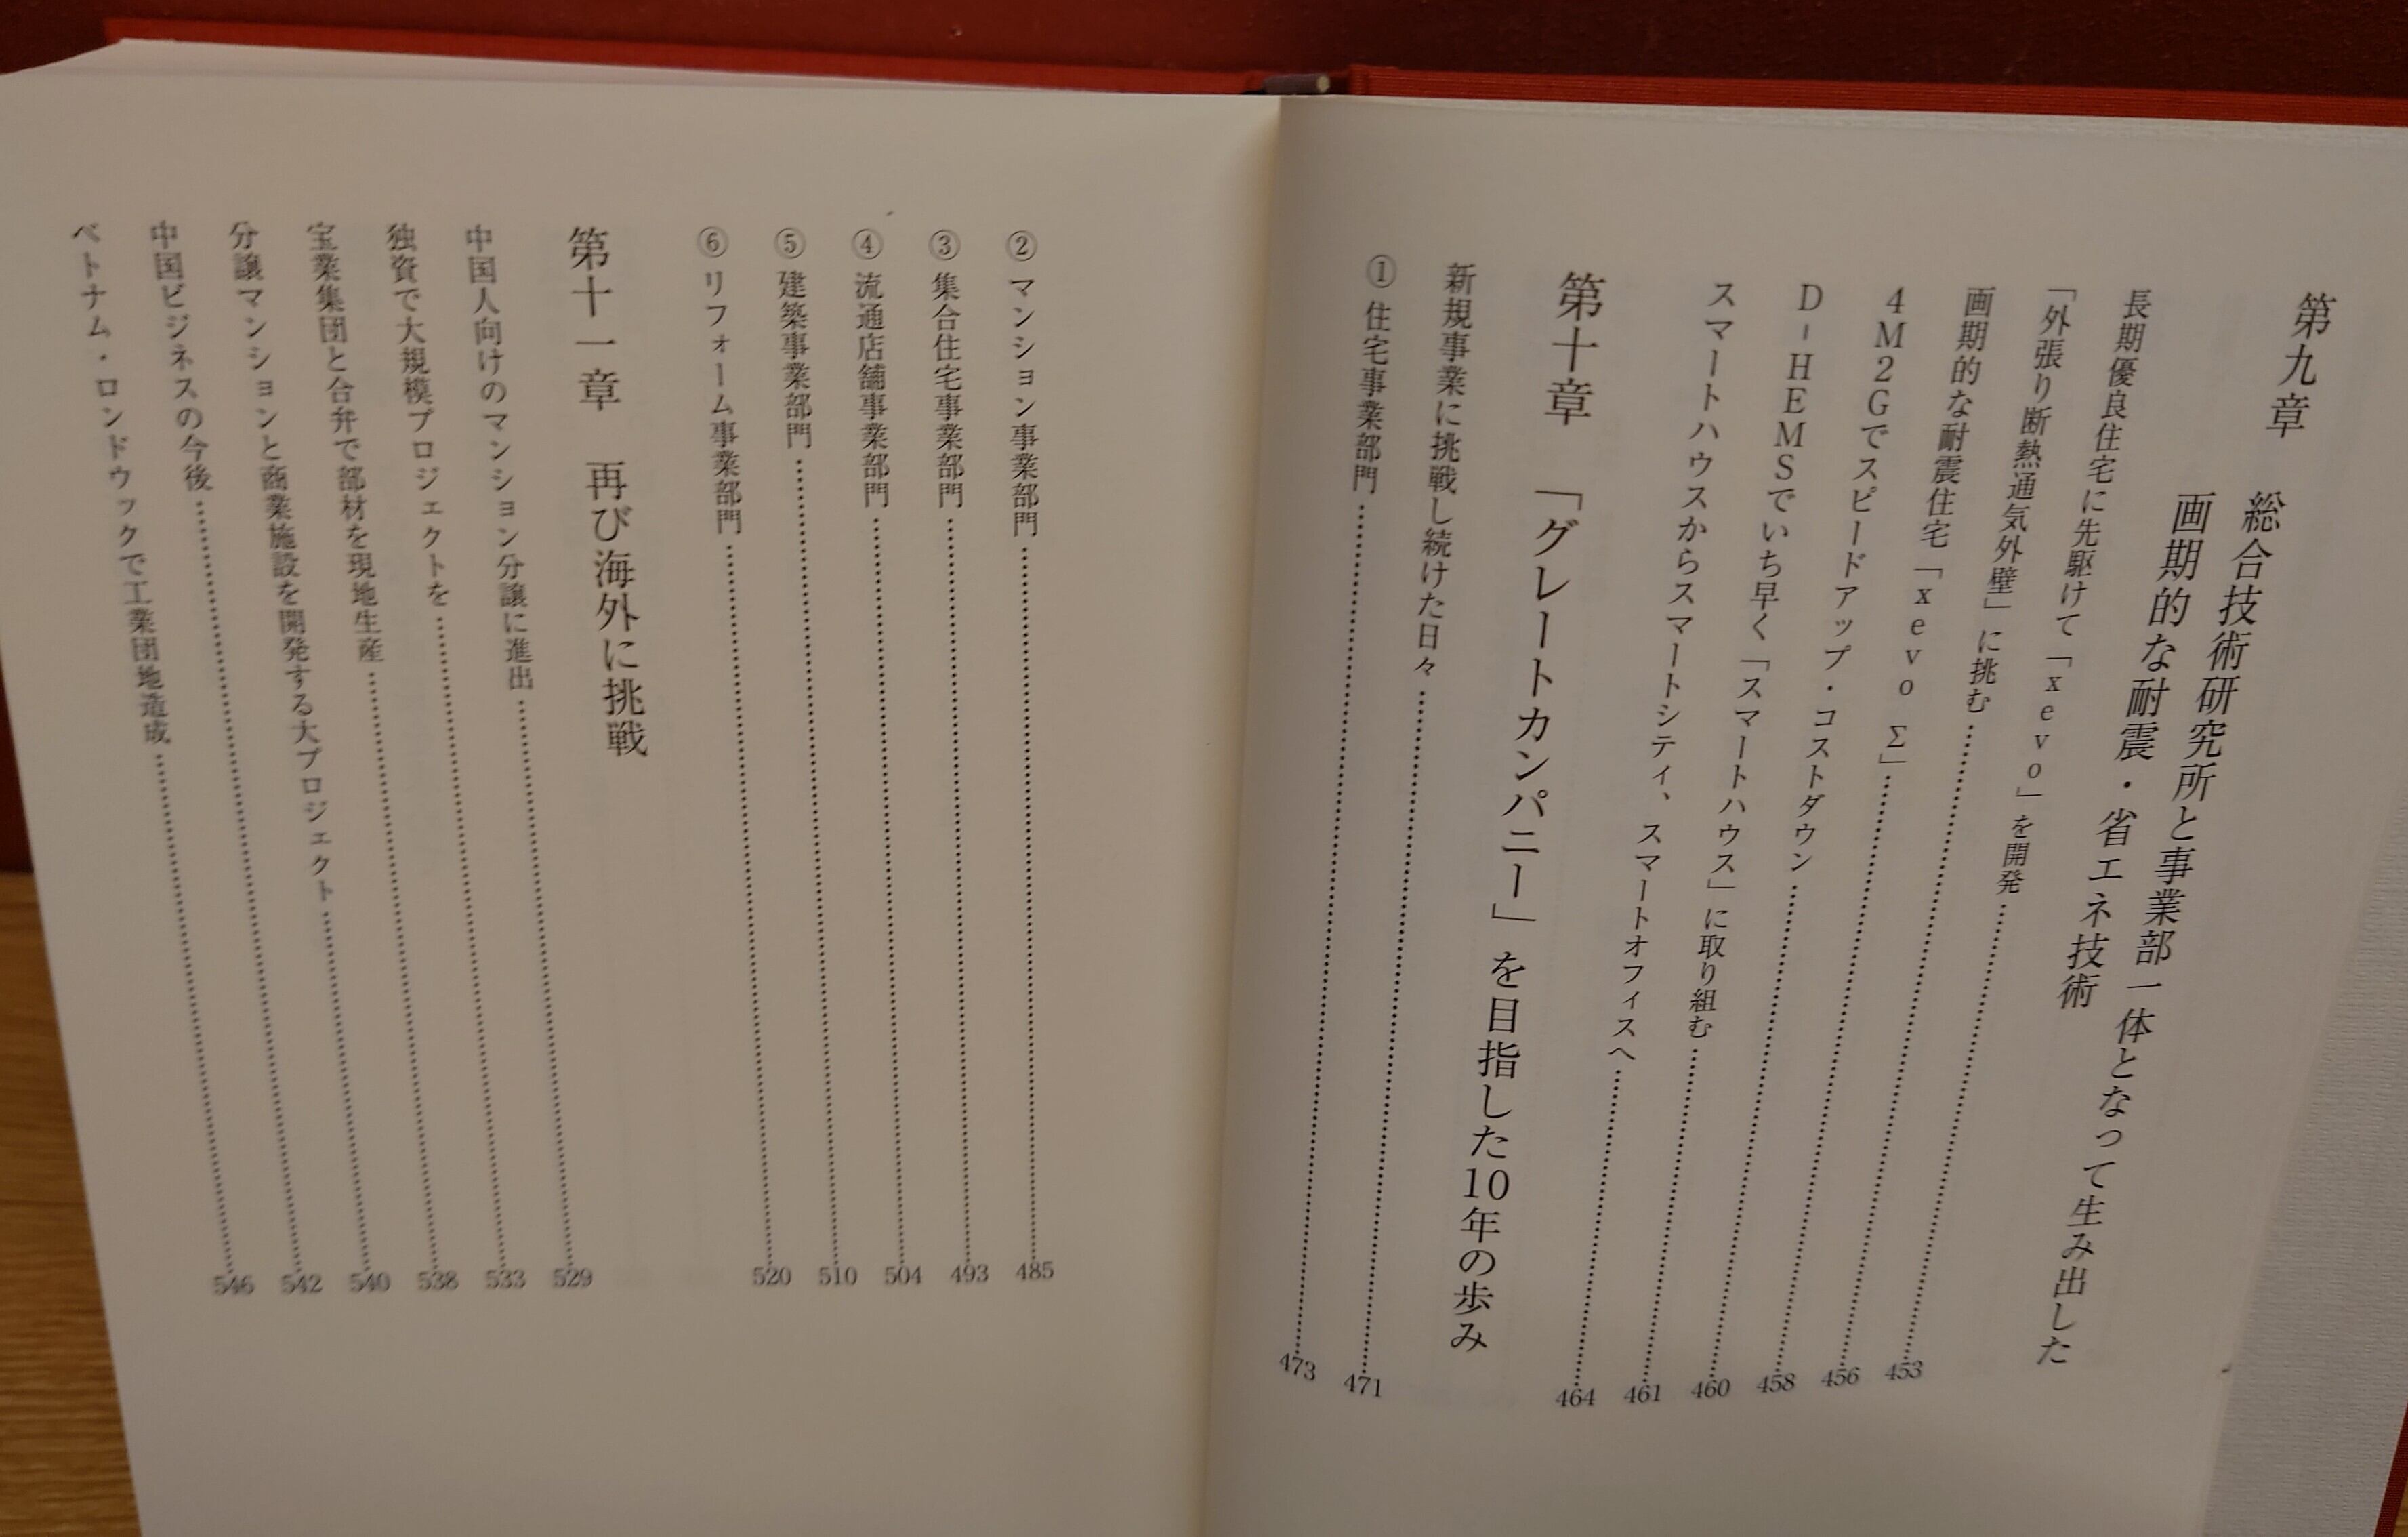 第九章 総合技術研究所と事業部一体となって生み出した
画期的な耐震・省エネ技術
長期優良住宅に先駆けて「xevo」を開発 453
「外張り断熱通気外壁」に挑む 456
画期的な耐震住宅「xevo Σ」 458
4M2Gでスピードアップ・コストダウン 460
D-HEMSでいち早く「スマートハウス」に取り組む 461
スマートハウスからスマートシティ、スマートオフィスへ 464
第十章 「グレートカンパニー」を目指した10年の歩み
新規事業に挑戦し続けた日々 471
① 住宅事業部門 473
② マンション事業部門 485
③ 集合住宅事業部門 493
④ 流通店舗事業部門 504
⑤ 建築事業部門 510
⑥ リフォーム事業部門 520
第十一章 再び海外に挑戦
中国人向けのマンション分譲に進出 529
独資で大規模プロジェクトを 533
宝業集団と合弁で部材を現地生産 538
分譲マンションと商業施設を開発する大プロジェクト 540
中国ビジネスの今後 542
ベトナム・ロンドウックで工業団地造成 546